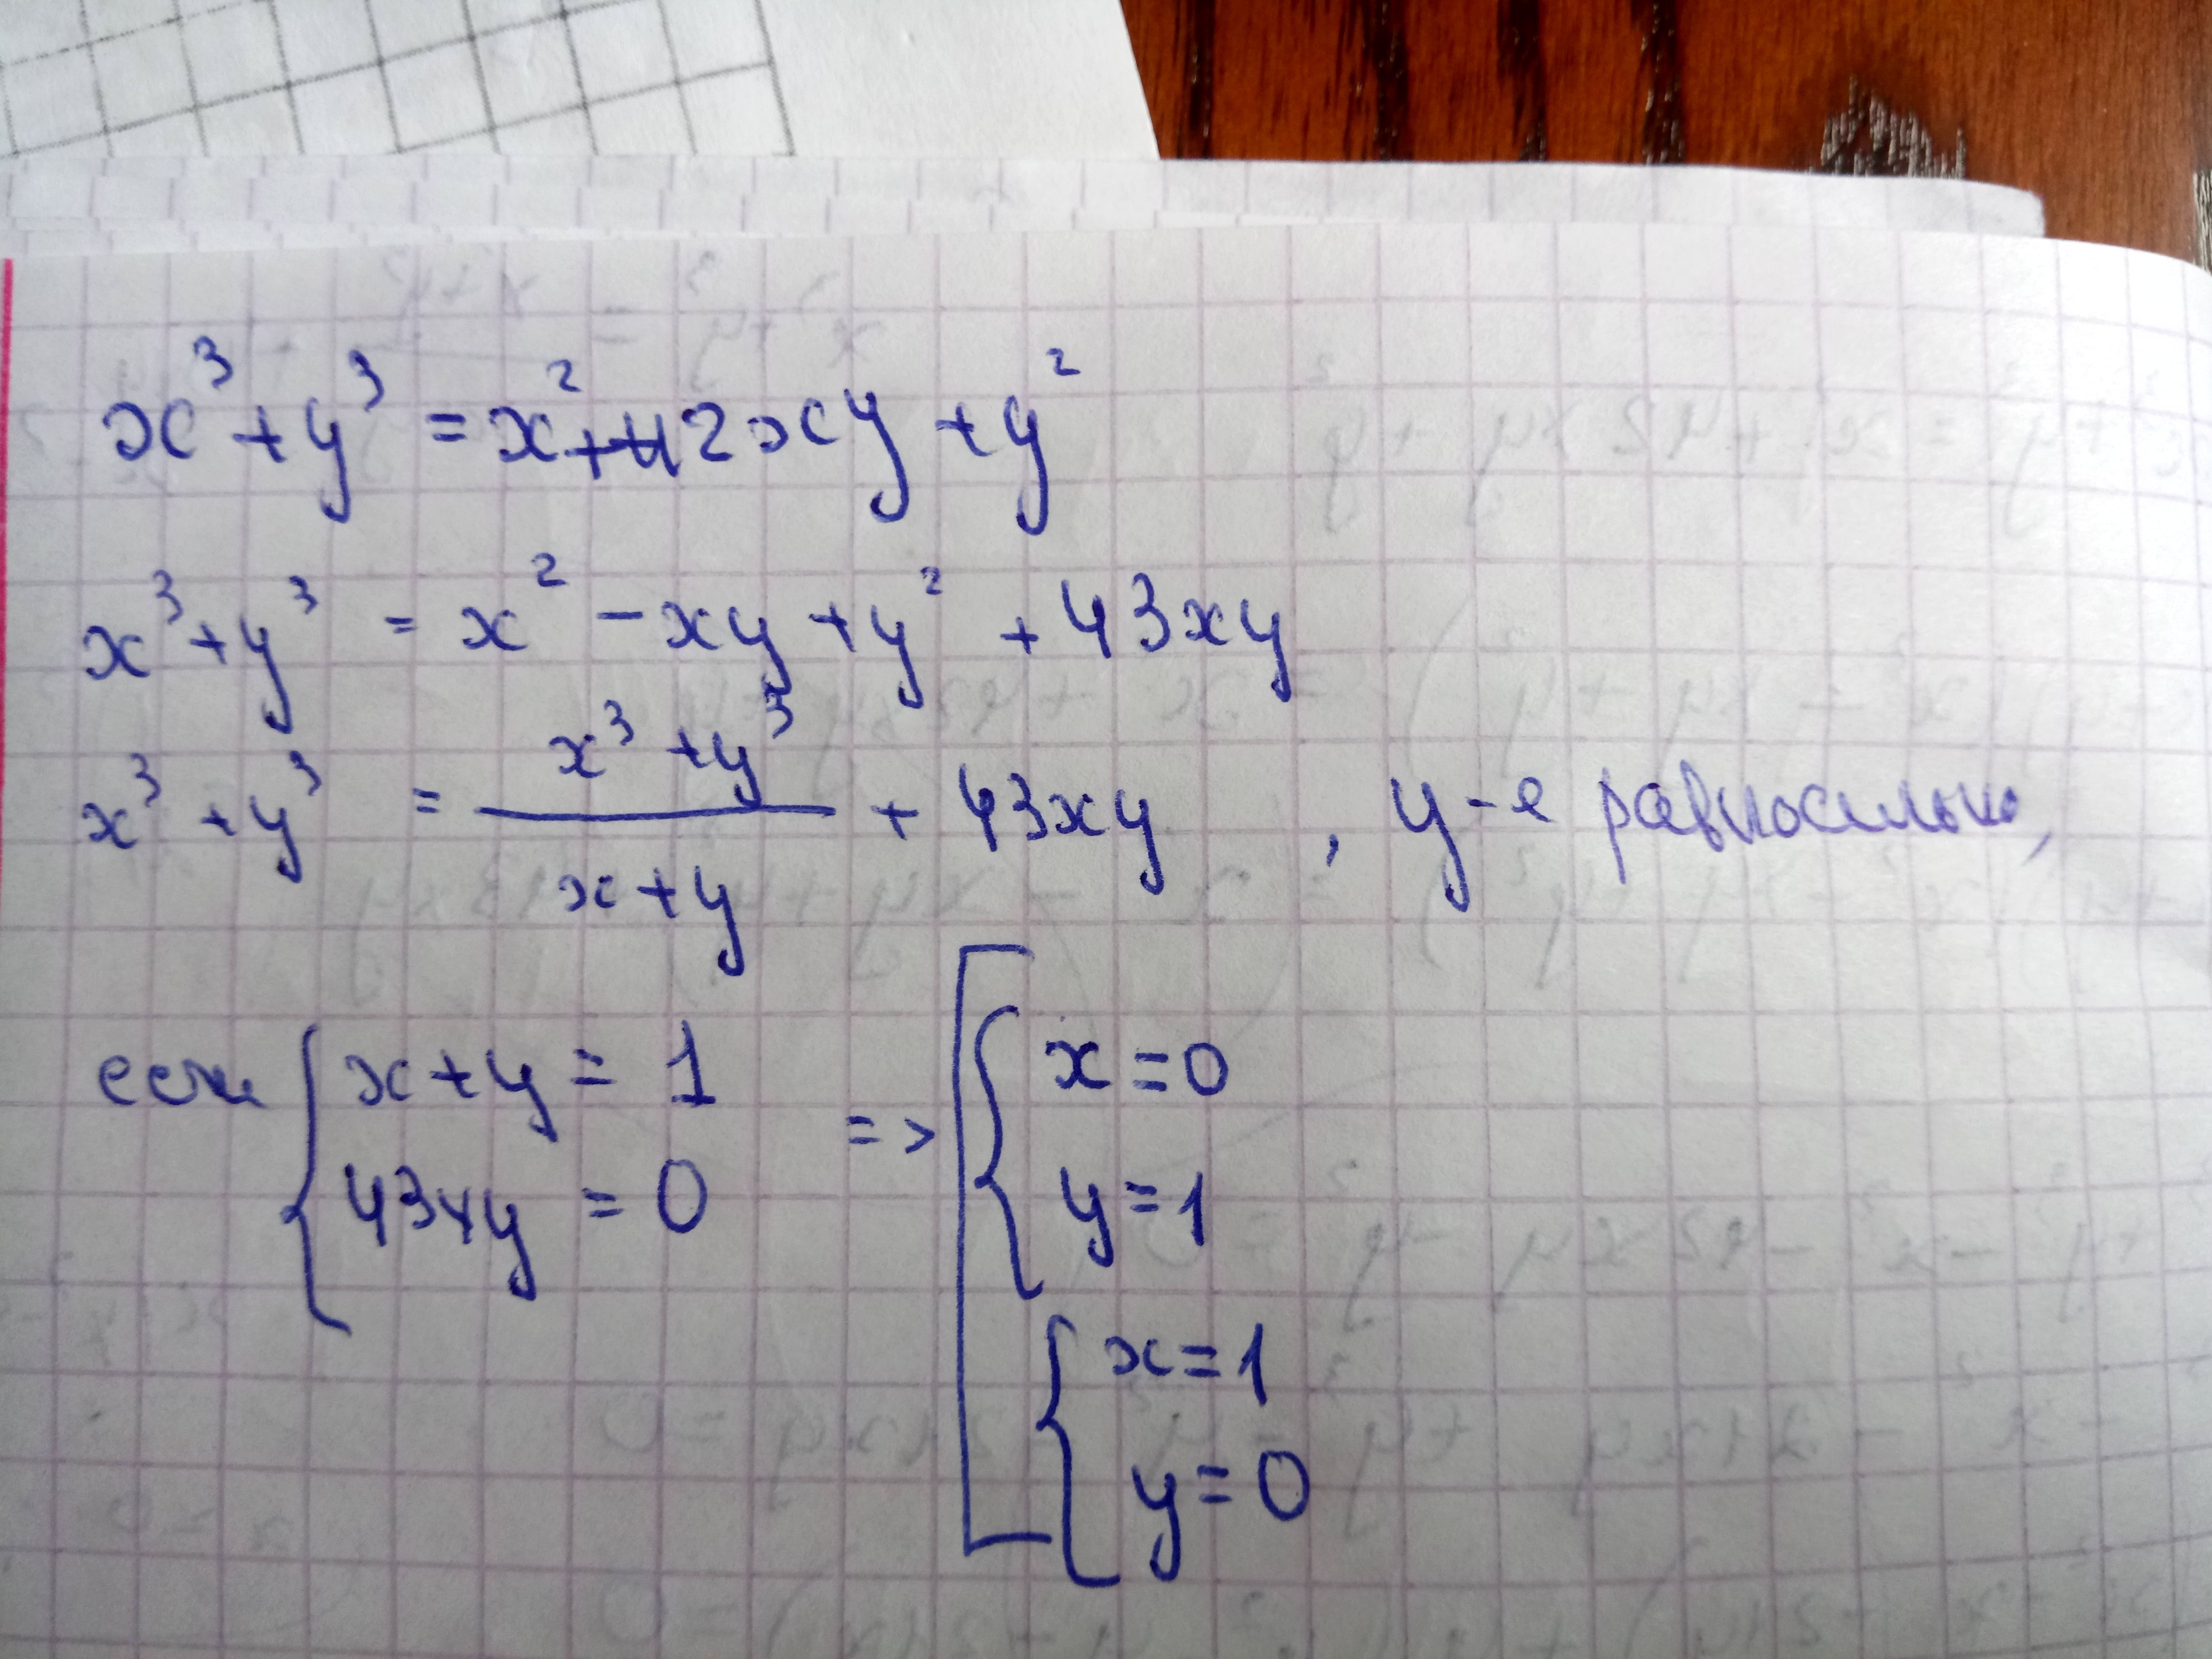 x³ + y³ = x² + 42xy + y²
x³ + y³ = x² - xy + y² + 43xy
x³ + y³ = (x³ + y³)/(x + y) + 43xy , у-е равносильно,
если { x + y = 1
43xy = 0
=> [ { x = 0
y = 1
{ x = 1
y = 0